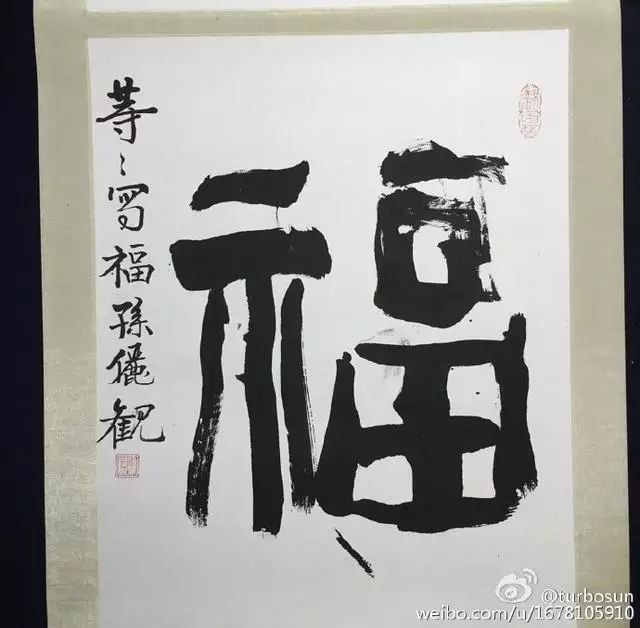 福
等〻寫福孫儷観
@turbosun
weibo.com/u/1678105910